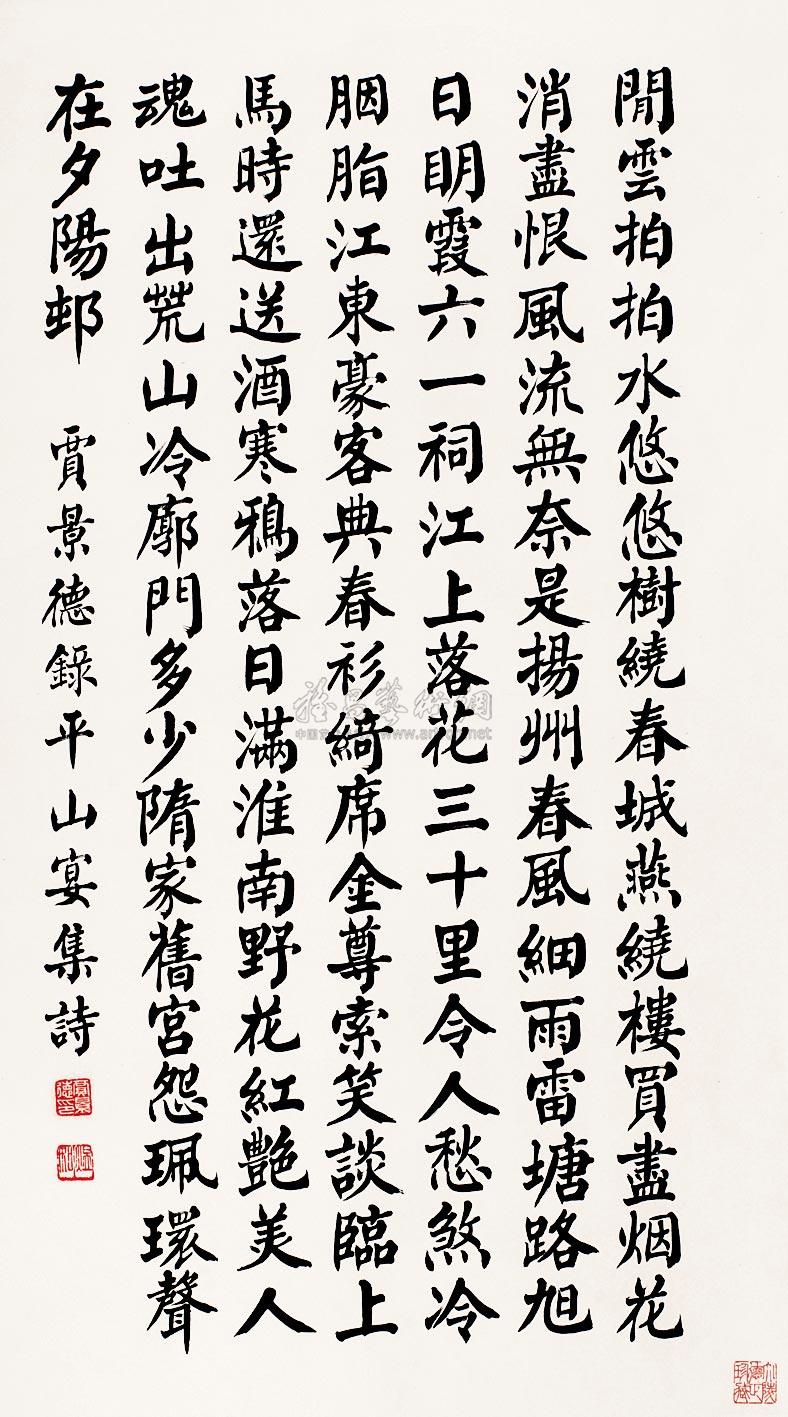 閒雲拍拍水悠悠樹繞春城燕繞樓買盡烟花
消盡恨風流無奈是揚州春風細雨雷塘路旭
日明霞六一祠江上落花三十里令人愁煞冷
胭脂江東豪客典春衫綺席金尊索笑談臨上
馬時還送酒寒鴉落日滿淮南野花紅艷美人
魂吐出荒山冷廓門多少隋家舊宮怨珮環聲
在夕陽邨
賈景德錄平山宴集詩